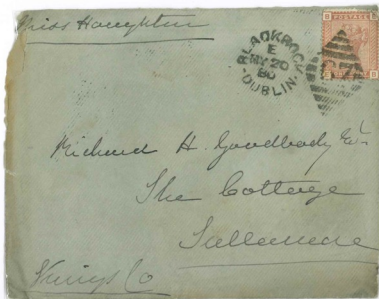 Miss Houghton
B POSTAGE
BLACKROCK
E
MY 20
80
DUBLIN
Richard H. Goodbody Esq.
The Cottage
Tullamore
Kings Co